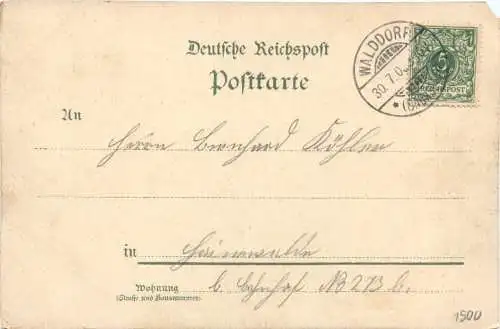 Deutsche Reichspost
Postkarte
WALDDORF
30.7.0
5
REICHSPOST
An
Herrn Bernhard Köhler
in Hainewalde
Wohnung
(Straße und Hausnummer)
b. Bahnhof No 2B b.
1900